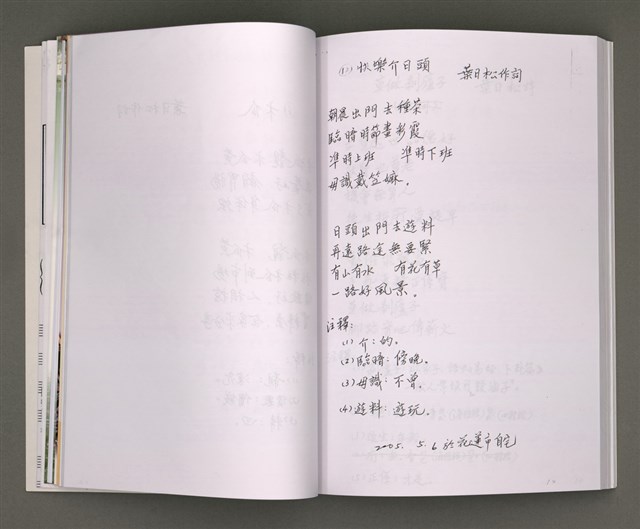 (1) 快樂介日頭　葉日松作詞
朝晨出門去種菜
臨暗時節畫彩霞
準時上班　準時下班
毋識戴笠嫲。
日頭出門去遊料
再遠路途無要緊
有山有水　有花有草
一路好風景。
注釋:
(1) 介:的。
(2) 臨暗:傍晚。
(3) 毋識:不曾。
(4) 遊料:遊玩。
2005. 5. 6 於花蓮市自宅